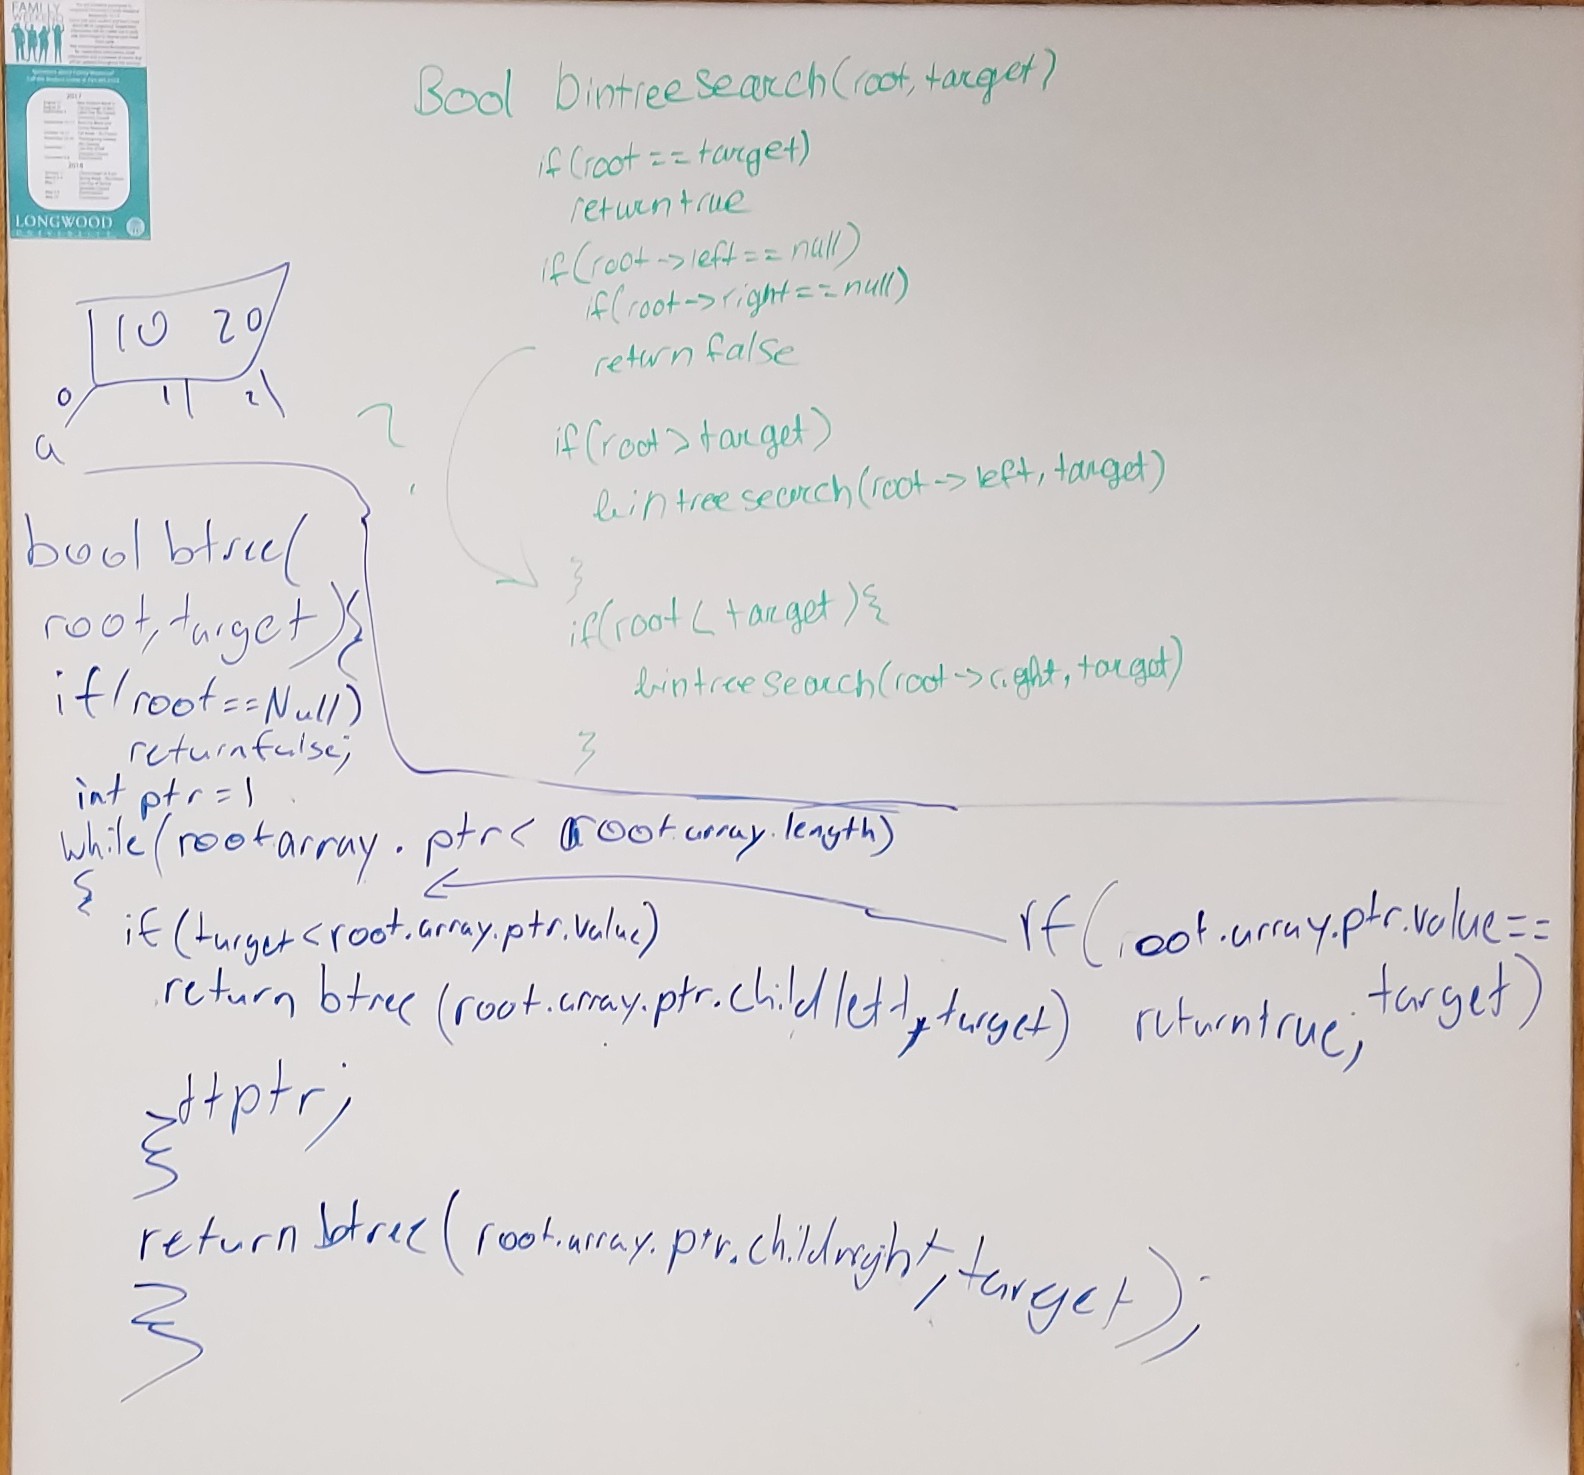 FAMILY
WEEKEND
2017
2018
LONGWOOD
UNIVERSITY
Bool bintreesearch(root, target)
if(root == target)
return true
if(root->left == null)
if(root->right == null)
return false
if(root > target)
bintreesearch(root->left, target)
}
if(root < target){
bintreesearch(root->right, target)
}
10 20
0 1 2
a
bool btree(
root, target){
if(root==Null)
return false;
int ptr=1
while(root.array.ptr< root.array.length)
{
if(root.array.ptr.value==
target)
return true;
if(target<root.array.ptr.value)
return btree(root.array.ptr.childleft, target)
++ptr;
}
return btree(root.array.ptr.childright, target);
}